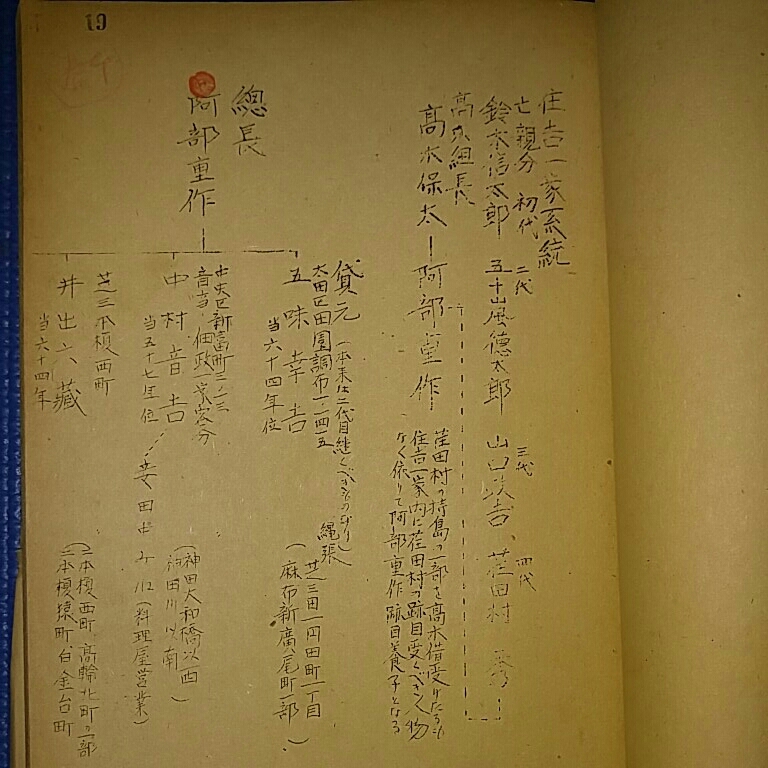 19
住吉一家系統
亡親分 初代 二代 三代 四代
鈴木信太郎 五十嵐徳太郎 山口 荏田村
高木組長
高木保太 阿部重作
荏田村の持島の一部を高木借受けたるも
住吉一家内に荏田村の跡目受くべき人物
なく依りて阿部重作跡目養子となる
總長
阿部重作
貸元
(本来は二代目継くべきものなり)
太田区田園調布一ノ四五
五味幸吉
当六十四年位
縄張
(芝三田一円田町一丁目
麻布新廣尾町一部)
中央区新富町二ノ三
音吉ハ佃政一家客分
中村音吉
当五十七年位
安田
(料理屋営業)
(神田大和橋以西
神田川以南)
芝二本榎西町
井出六藏
当六十四年
(二本榎西町 高輪北町の一部
二本榎猿町 白金台町